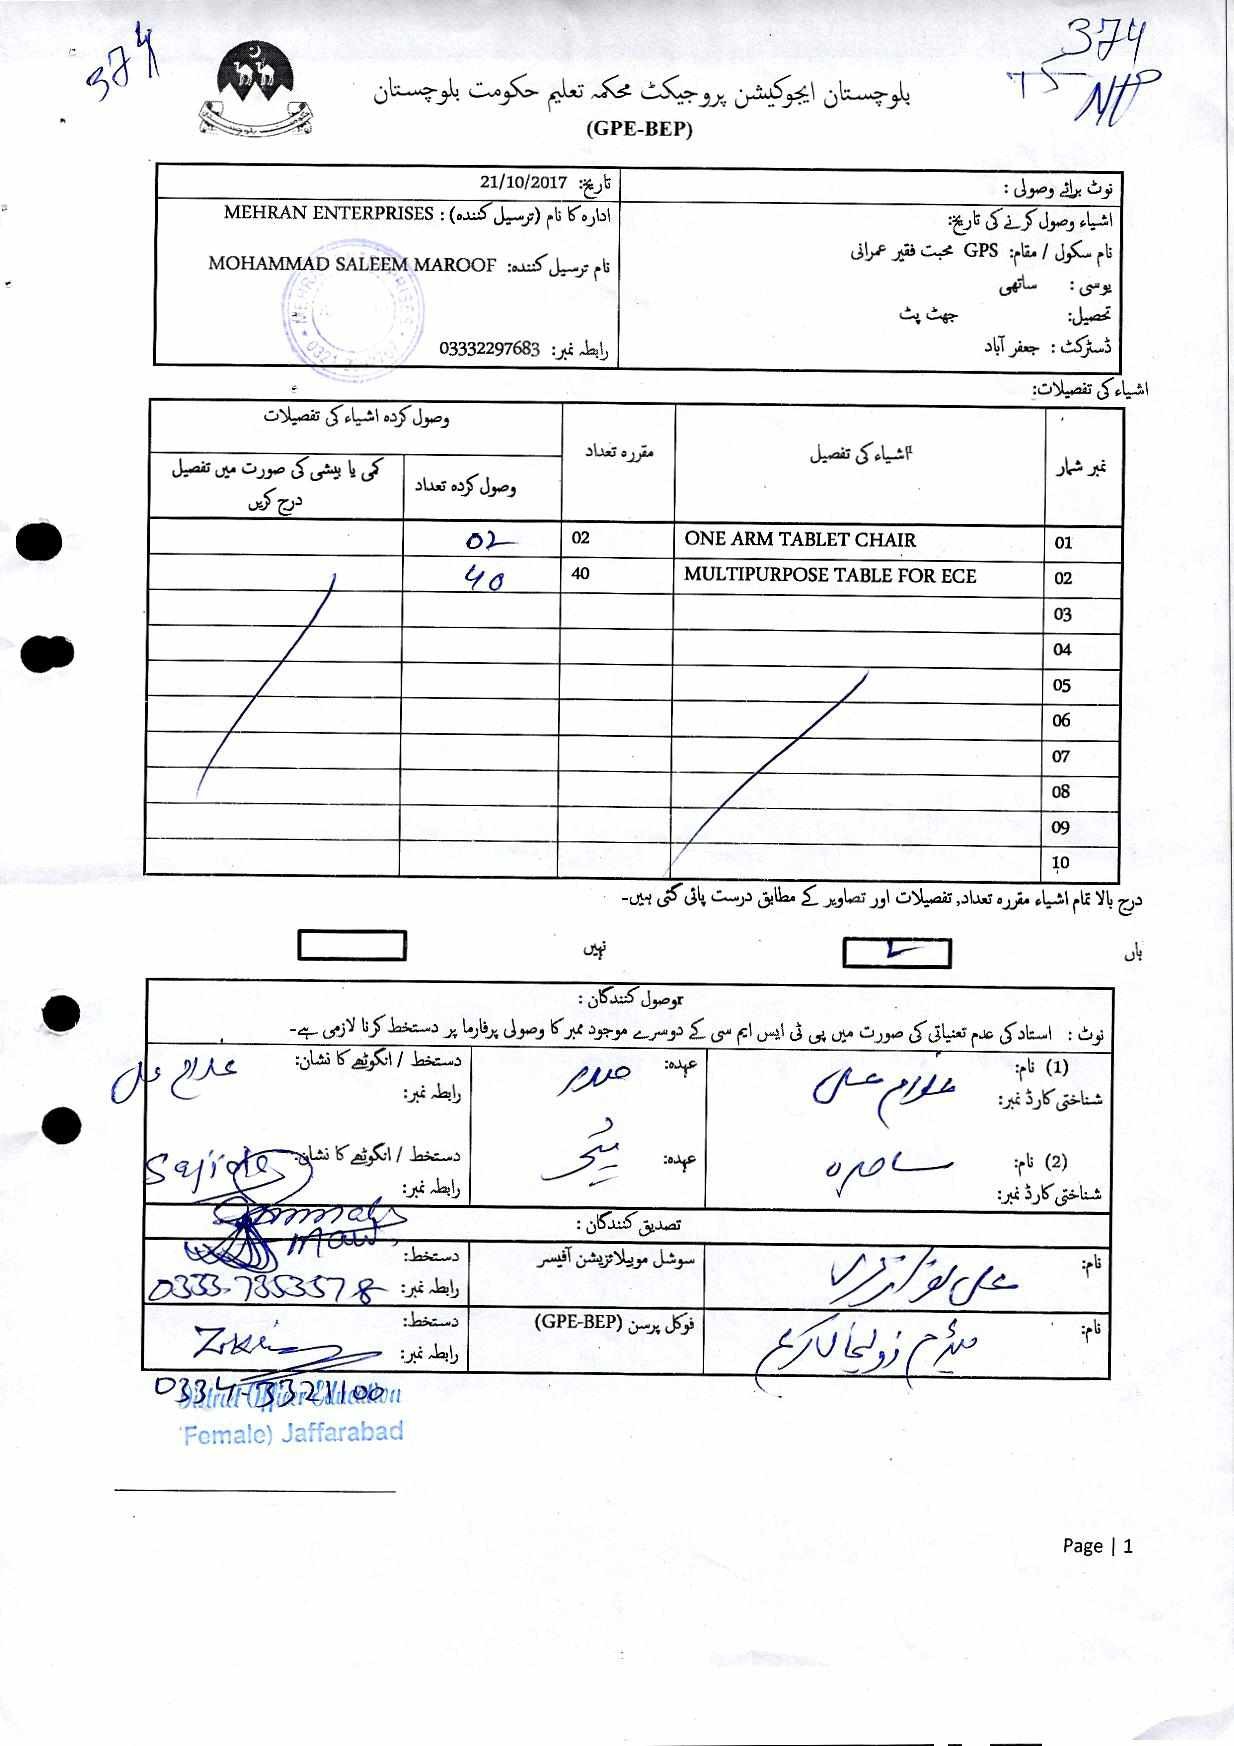 374
374
بلوچستان ایجوکیشن پروجیکٹ محکمہ تعلیم حکومت بلوچستان
(GPE-BEP)
نوٹ برائے وصولی :
تاریخ: 21/10/2017
اشیاء وصول کرنے کی تاریخ:
ادارہ کا نام (ترسیل کنندہ) : MEHRAN ENTERPRISES
نام سکول / مقام: GPS محبت فقیر عمرانی
نام ترسیل کنندہ: MOHAMMAD SALEEM MAROOF
یوسی : ساتھی
تحصیل: جھٹ پٹ
ڈسٹرکٹ : جعفر آباد
رابطہ نمبر: 03332297683
اشیاء کی تفصیلات:
نمبر شمار
اشیاء کی تفصیل
مقررہ تعداد
وصول کردہ اشیاء کی تفصیلات
وصول کردہ تعداد
کمی یا بیشی کی صورت میں تفصیل درج کریں
01 ONE ARM TABLET CHAIR 02 02
02 MULTIPURPOSE TABLE FOR ECE 40 40
03
04
05
06
07
08
09
10
درج بالا تمام اشیاء مقررہ تعداد, تفصیلات اور تصاویر کے مطابق درست پائی گئی ہیں۔
ہاں
نہیں
وصول کنندگان :
نوٹ : استاد کی عدم تعنیاتی کی صورت میں پی ٹی ایس ایم سی کے دوسرے موجود ممبر کا وصولی پرفارما پر دستخط کرنا لازمی ہے۔
(1) نام: غلام علی
عہدہ: صدر
دستخط / انگوٹھے کا نشان: غلام علی
شناختی کارڈ نمبر:
رابطہ نمبر:
(2) نام: ساجدہ
عہدہ: ٹیچر
دستخط / انگوٹھے کا نشان: Sajida
شناختی کارڈ نمبر:
رابطہ نمبر:
تصدیق کنندگان :
نام:
سوشل موبیلائزیشن آفیسر
دستخط:
رابطہ نمبر: 0333-7353578
نام: میڈم زولیخا
فوکل پرسن (GPE-BEP)
دستخط:
رابطہ نمبر:
0334-3321100
District Officer Education
(Female) Jaffarabad
Page | 1